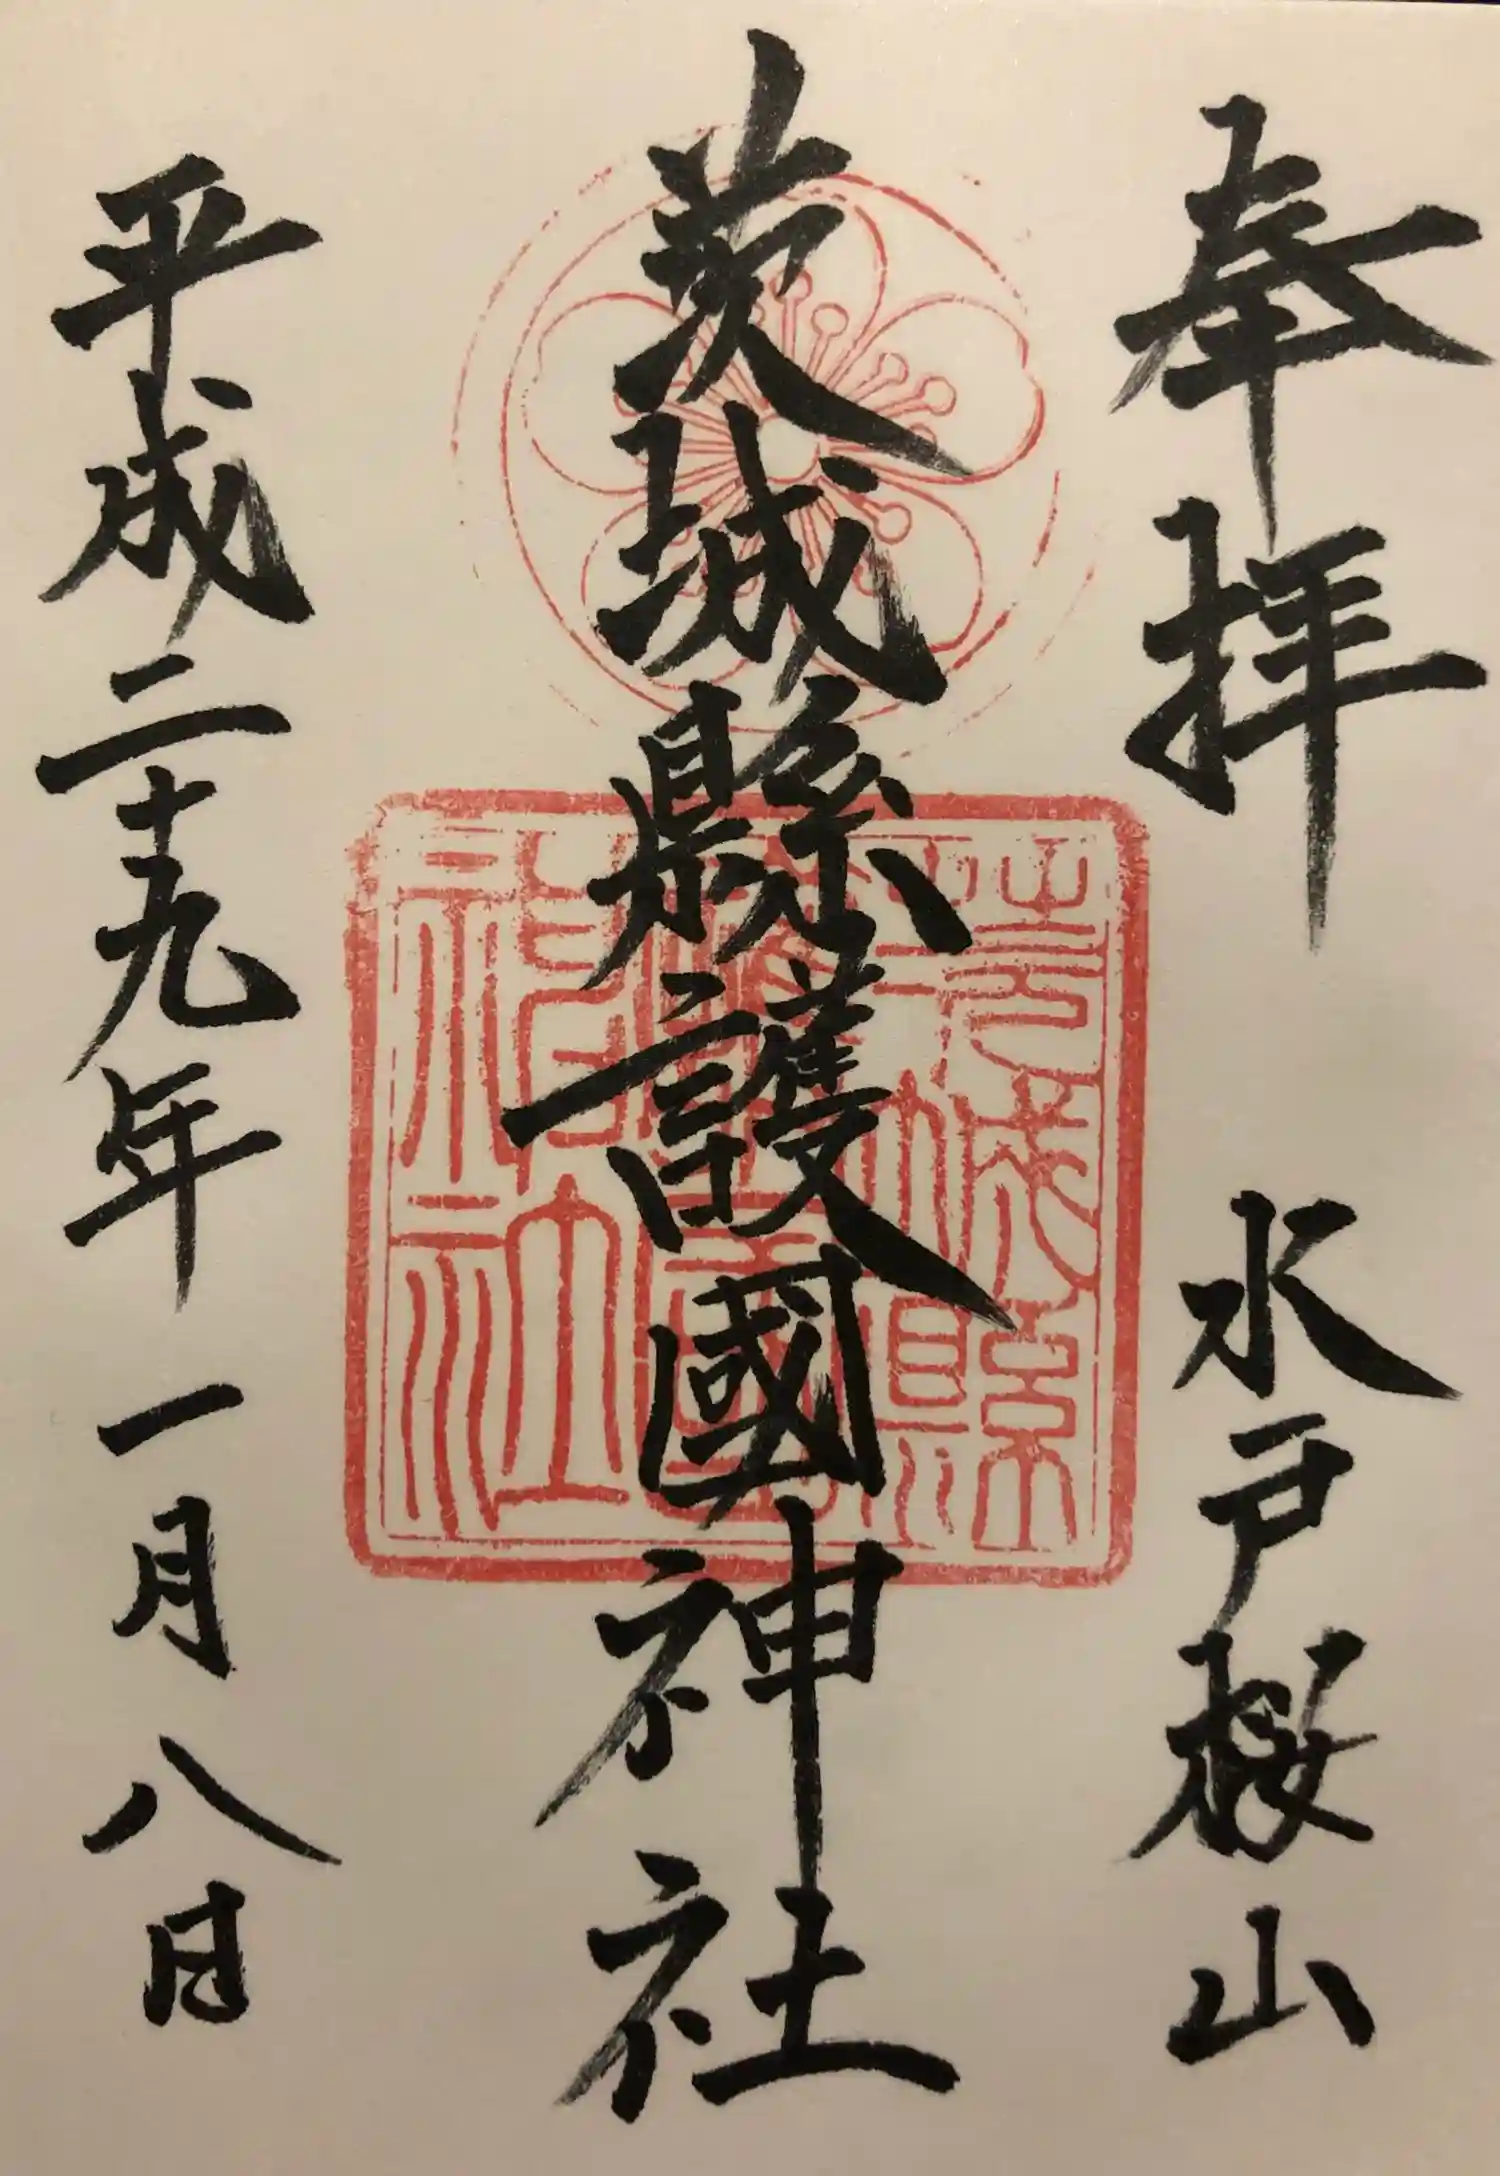 奉拝 水戸桜山
茨城縣護國神社
平成二十九年一月八日
茨城縣
護國
神社